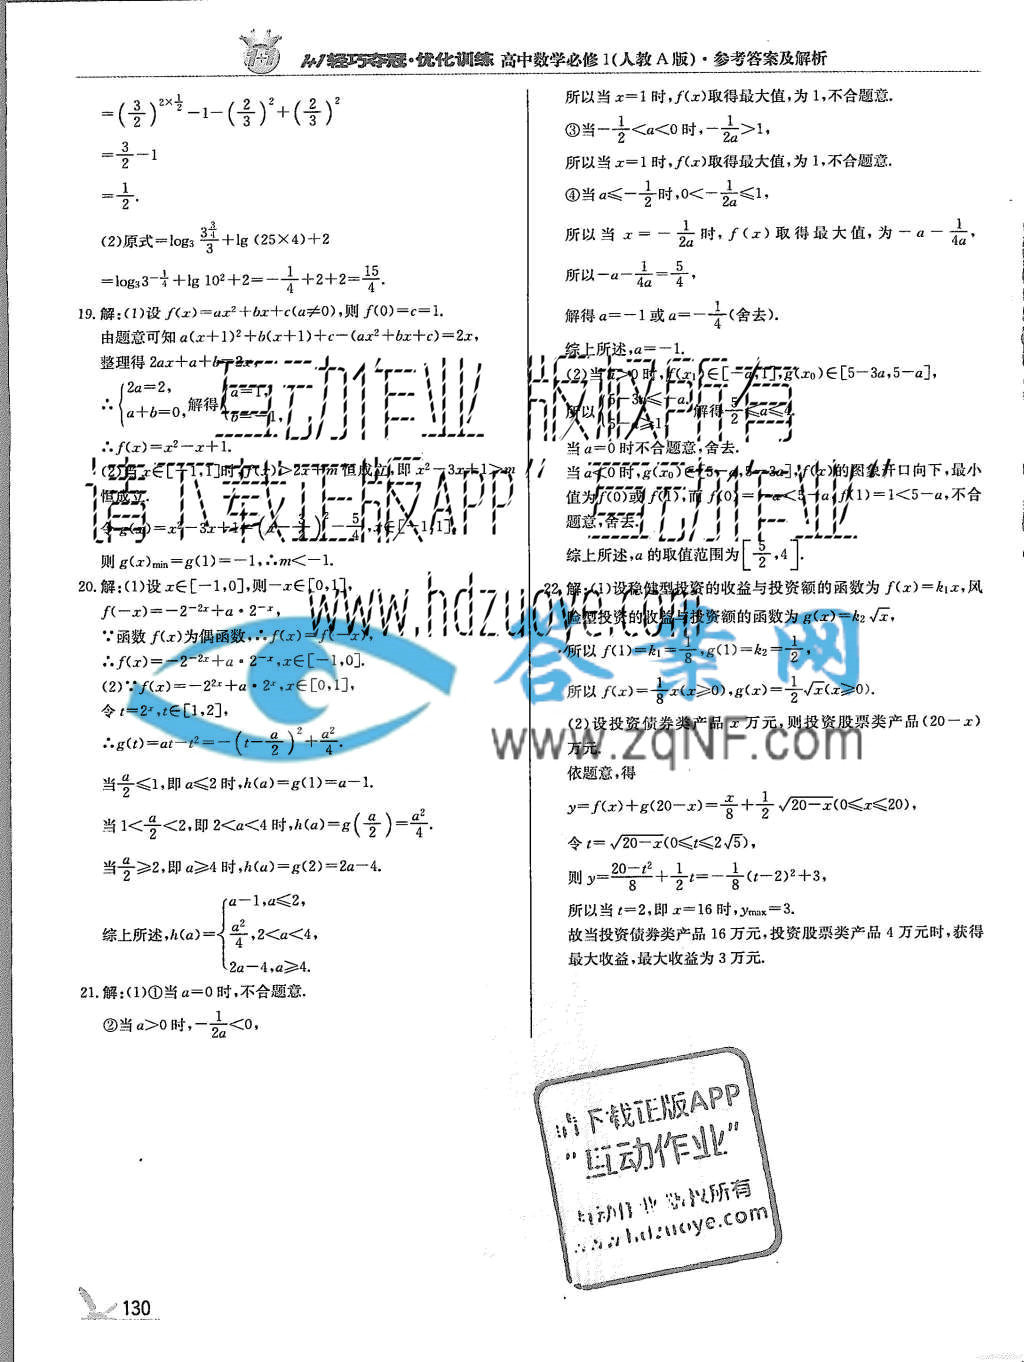 1+1轻巧夺冠·优化训练 高中数学必修1(人教A版)·参考答案及解析
=(3/2)^{2×1/2}-1-(2/3)^2+(2/3)^2
=3/2-1
=1/2.
(2)原式=log₃ 3^{3/4}/3+lg (25×4)+2
=log₃3^{-1/4}+lg 10²+2=-1/4+2+2=15/4.
19. 解:(1)设 f(x)=ax²+bx+c(a≠0),则 f(0)=c=1.
由题意可知 a(x+1)²+b(x+1)+c-(ax²+bx+c)=2x,
整理得 2ax+a+b=2x,
∴{2a=2, a+b=0, 解得{a=1, b=-1,
∴f(x)=x²-x+1.
(2)当 x∈[-1,1]时,f(x)>2x+m 恒成立,即 x²-3x+1>m
恒成立.
令 g(x)=x²-3x+1=(x-3/2)²-5/4,x∈[-1,1],
则 g(x)min=g(1)=-1,∴m<-1.
20. 解:(1)设 x∈[-1,0],则-x∈[0,1],
f(-x)=-2^{-2x}+a·2^{-x},
∵函数 f(x)为偶函数,∴f(x)=f(-x),
∴f(x)=-2^{-2x}+a·2^{-x},x∈[-1,0].
(2)∵f(x)=-2^{2x}+a·2^x,x∈[0,1],
令 t=2^x,t∈[1,2],
∴g(t)=at-t²=-(t-a/2)²+a²/4.
当a/2≤1,即 a≤2 时,h(a)=g(1)=a-1.
当 1<a/2<2,即 2<a<4 时,h(a)=g(a/2)=a²/4.
当a/2≥2,即 a≥4 时,h(a)=g(2)=2a-4.
综上所述,h(a)={a-1,a≤2, a²/4,2<a<4, 2a-4,a≥4.
21. 解:(1)①当 a=0 时,不合题意.
②当 a>0 时,-1/2a<0,
所以当 x=1 时,f(x)取得最大值,为 1,不合题意.
③当-1/2<a<0 时,-1/2a>1,
所以当 x=1 时,f(x)取得最大值,为 1,不合题意.
④当 a≤-1/2时,0<-1/2a≤1,
所以当 x=-1/2a时,f(x)取得最大值,为-a-1/4a,
所以-a-1/4a=5/4,
解得 a=-1 或 a=-1/4(舍去).
综上所述,a=-1.
(2)当 a>0 时,f(x₁)∈[-a,1],g(x₀)∈[5-3a,5-a],
所以{5-3a≤-a, 5-a≥1, 解得5/2≤a≤4.
当 a=0 时不合题意,舍去.
当 a<0 时,g(x₀)∈[5-a,5-3a],f(x)的图象开口向下,最小
值为 f(0)或 f(1),而 f(0)=-a<5-a,f(1)=1<5-a,不合
题意,舍去.
综上所述,a 的取值范围为[5/2,4].
22. 解:(1)设稳健型投资的收益与投资额的函数为 f(x)=k₁x,风
险型投资的收益与投资额的函数为 g(x)=k₂√x,
所以 f(1)=k₁=1/8,g(1)=k₂=1/2,
所以 f(x)=1/8x(x≥0),g(x)=1/2√x(x≥0).
(2)设投资债券类产品 x 万元,则投资股票类产品(20-x)
万元.
依题意,得
y=f(x)+g(20-x)=x/8+1/2√20-x(0≤x≤20),
令 t=√20-x(0≤t≤2√5),
则 y=20-t²/8+1/2t=-1/8(t-2)²+3,
所以当 t=2,即 x=16 时,ymax=3.
故当投资债券类产品 16 万元,投资股票类产品 4 万元时,获得
最大收益,最大收益为 3 万元.
互动作业 版权所有
请下载正版APP“互动作业”
www.hdzuoye.com
答案网
www.zqNF.com
请下载正版APP
“互动作业”
互动作业 版权所有
www.hdzuoye.com
130